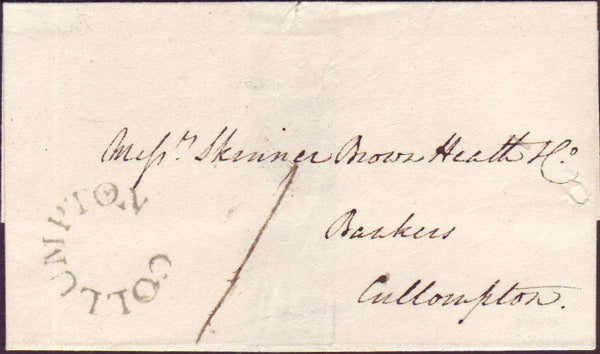 Messrs. Skinner Brown Heath & Co.
Bankers
Cullompton.
COLLUMPTON